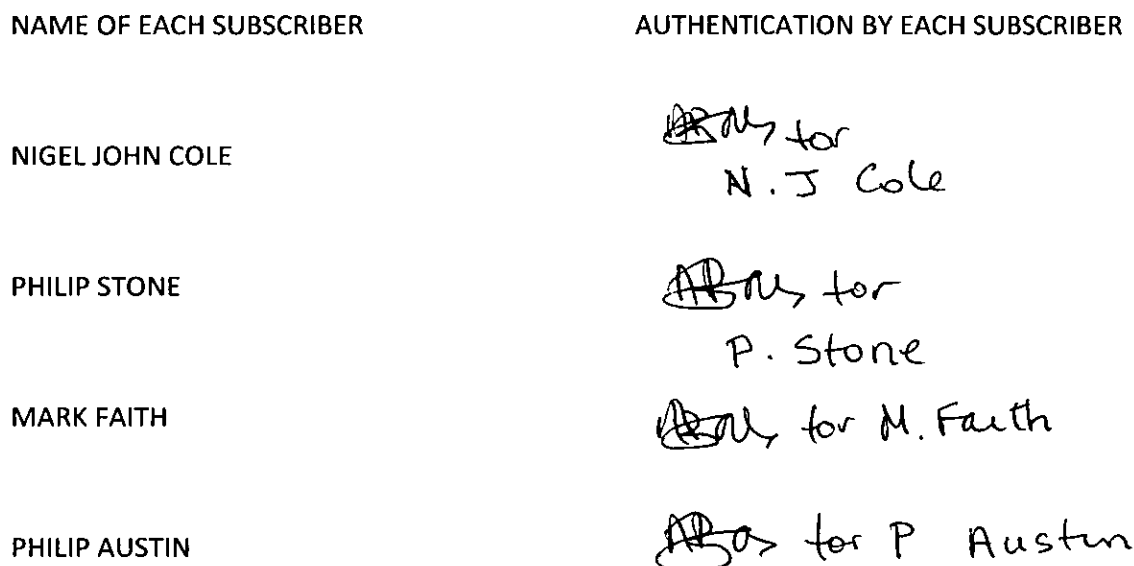 NAME OF EACH SUBSCRIBER AUTHENTICATION BY EACH SUBSCRIBER
NIGEL JOHN COLE
for
N. J Cole
PHILIP STONE
for
P. Stone
MARK FAITH
for M. Faith
PHILIP AUSTIN
for P Austin